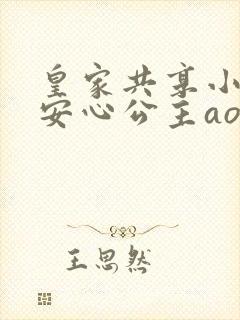 皇家共享小
安心公主ao
王思然